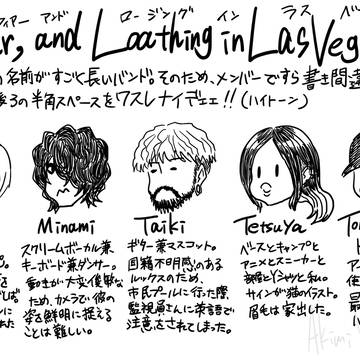 ィアー アンド ロージング イン ラス ベ
r, and Loathing in Las Veg
の名前がすごく長いバンド。そのため、メンバーですら書き間違
後ろの半角スペースをワスレナイデェェ!!(ハイトーン)
Minami
スクリームボーカル兼
キーボード兼ダンサー。
動きが大変俊敏な
ため、カメラで彼の
姿を鮮明に捉える
ことは難しい。
Taiki
ギター兼マスコット。
国籍不明感のある
ルックスのため、
市民プールに行った際、
監視員さんに英語で
注意をされてしまった。
Tetsuya
ベースとキャンプと
アニメとスニーカーと
部屋とYシャツと私。
サインが猫のイラスト。
眉毛は家出した。